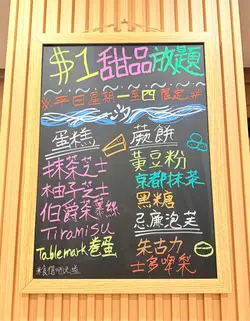 $1甜品放題
※平日星期一至四限定※
蛋糕
抹茶芝士
柚子芝士
伯爵茶慕絲
Tiramisu
Tablemark卷蛋
蕨餅
黃豆粉
京都抹茶
黑糖
忌廉泡芙
朱古力
士多啤梨